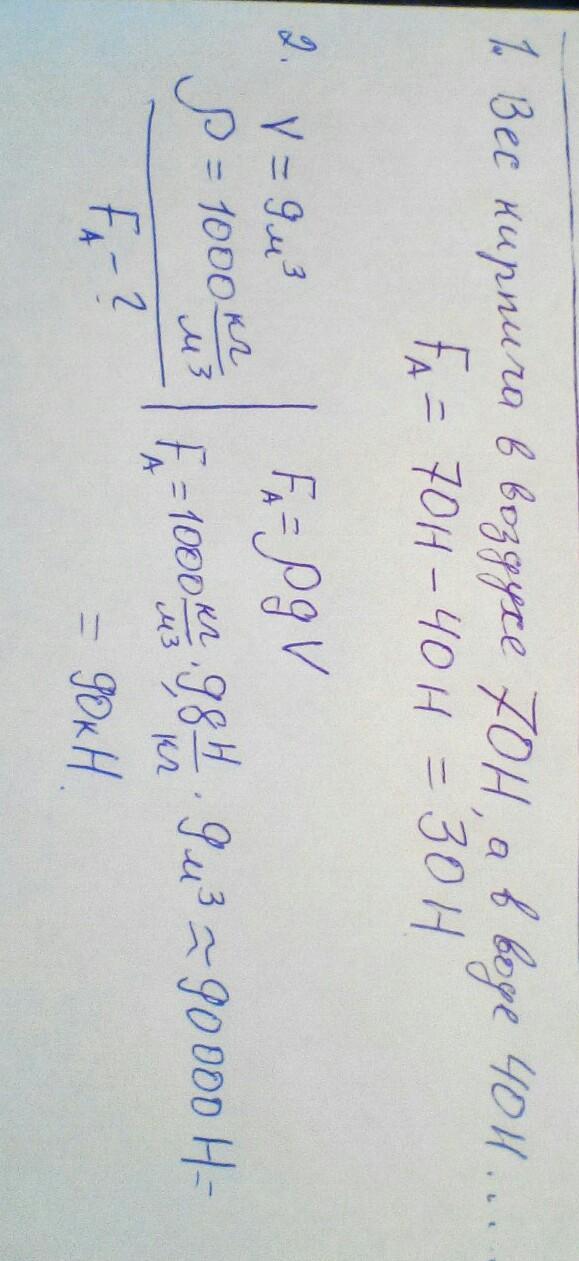 1. Вес кирпича в воздухе 70Н, а в воде 40Н....
F_A = 70Н - 40Н = 30Н
2. V = 9м³
ρ = 1000 кг/м³
F_A - ?
F_A = ρgV
F_A = 1000 кг/м³ · 9,8 Н/кг · 9м³ ≈ 90000 Н =
= 90кН.